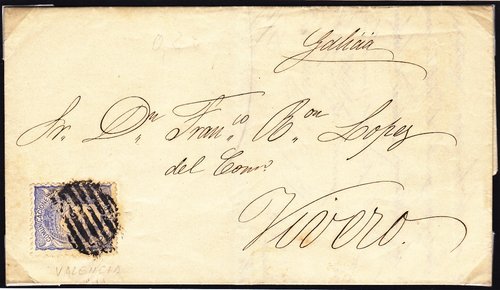 Galicia
Sr. Dn. Franco. Ron Lopez
del Com.
Vivero.
VALENCIA